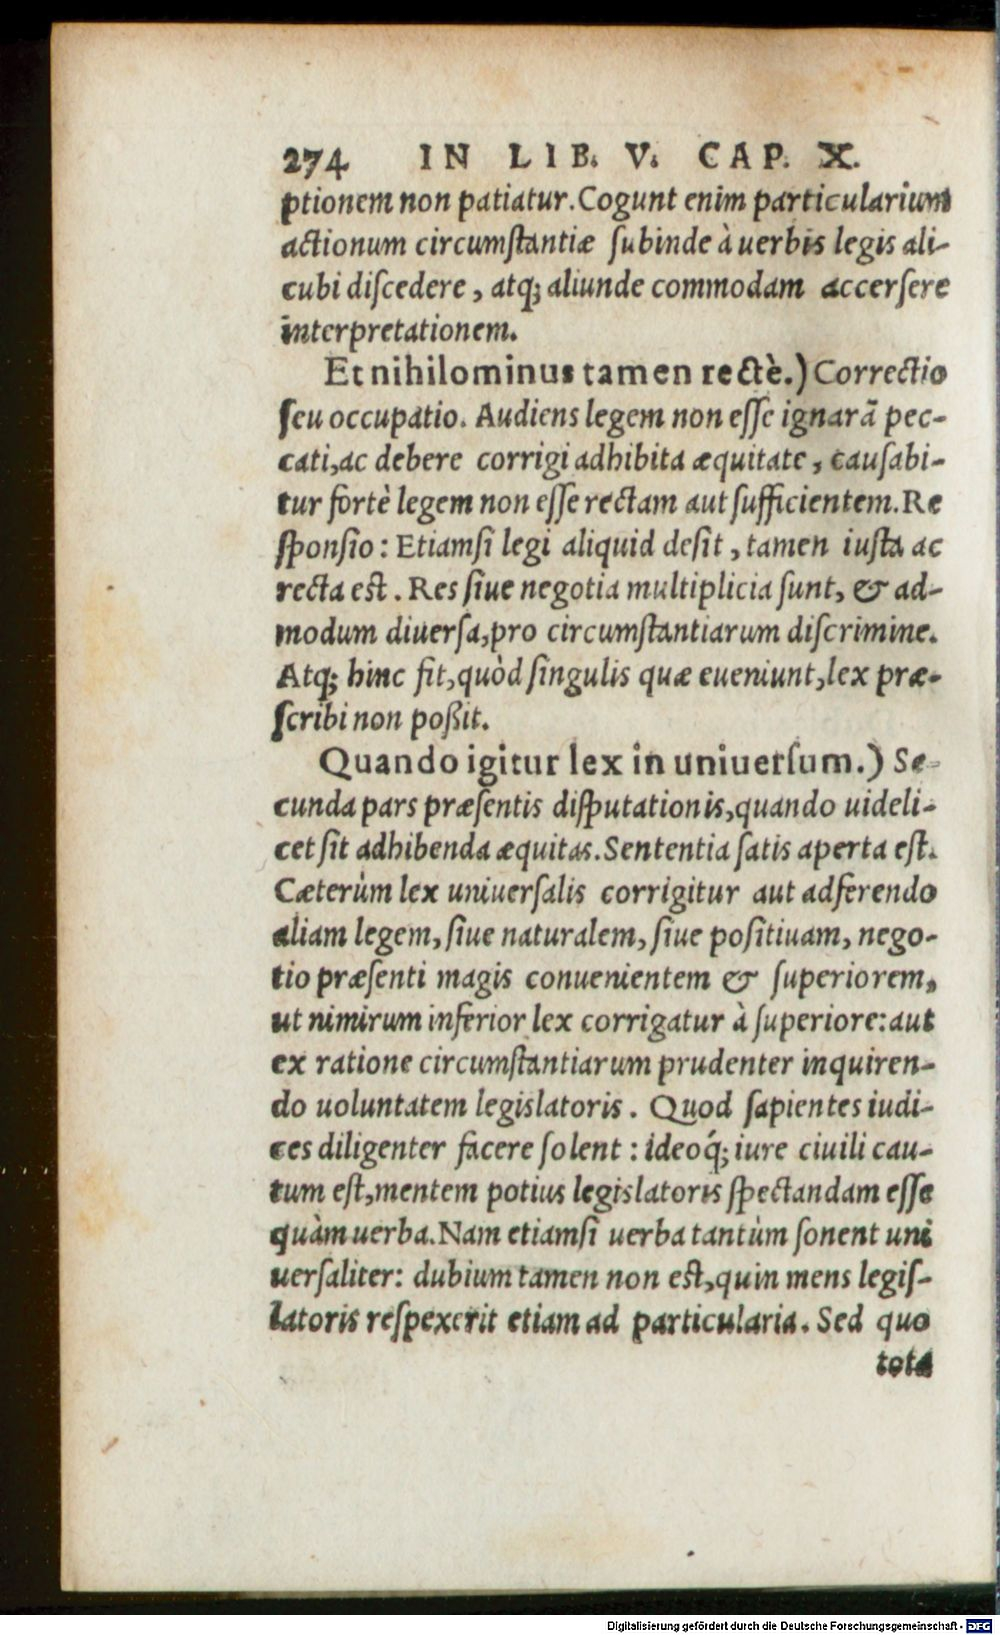 274 IN LIB. V. CAP. X.
ptionem non patiatur. Cogunt enim particularium
actionum circumſtantiæ ſubinde à uerbis legis ali-
cubi diſcedere, atq; aliunde commodam accerſere
interpretationem.
Et nihilominus tamen rectè.) Correctio
ſeu occupatio. Audiens legem non eſſe ignarã pec-
cati, ac debere corrigi adhibita æquitate, cauſabi-
tur fortè legem non eſſe rectam aut ſufficientem. Re
ſponſio: Etiamſi legi aliquid deſit, tamen iuſta ac
recta est. Res ſiue negotia multiplicia ſunt, & ad-
modum diuerſa, pro circumſtantiarum diſcrimine.
Atq; hinc fit, quòd ſingulis quæ eueniunt, lex præ-
ſcribi non poßit.
Quando igitur lex in uniuerſum.) Se-
cunda pars præſentis diſputationis, quando uideli-
cet ſit adhibenda æquitas. Sententia ſatis aperta eſt.
Cæterùm lex uniuerſalis corrigitur aut adferendo
aliam legem, ſiue naturalem, ſiue poſitiuam, nego-
tio præſenti magis conuenientem & ſuperiorem,
ut nimirum inferior lex corrigatur à ſuperiore: aut
ex ratione circumſtantiarum prudenter inquiren-
do uoluntatem legislatoris. Quod ſapientes iudi-
ces diligenter facere ſolent: ideoq́; iure ciuili cau-
tum eſt, mentem potius legislatoris ſpectandam eſſe
quàm uerba. Nam etiamſi uerba tantùm ſonent uni
uerſaliter: dubium tamen non eſt, quin mens legiſ-
latoris reſpexerit etiam ad particularia. Sed quo
tota
Digitalisierung gefördert durch die Deutsche Forschungsgemeinschaft - DFG